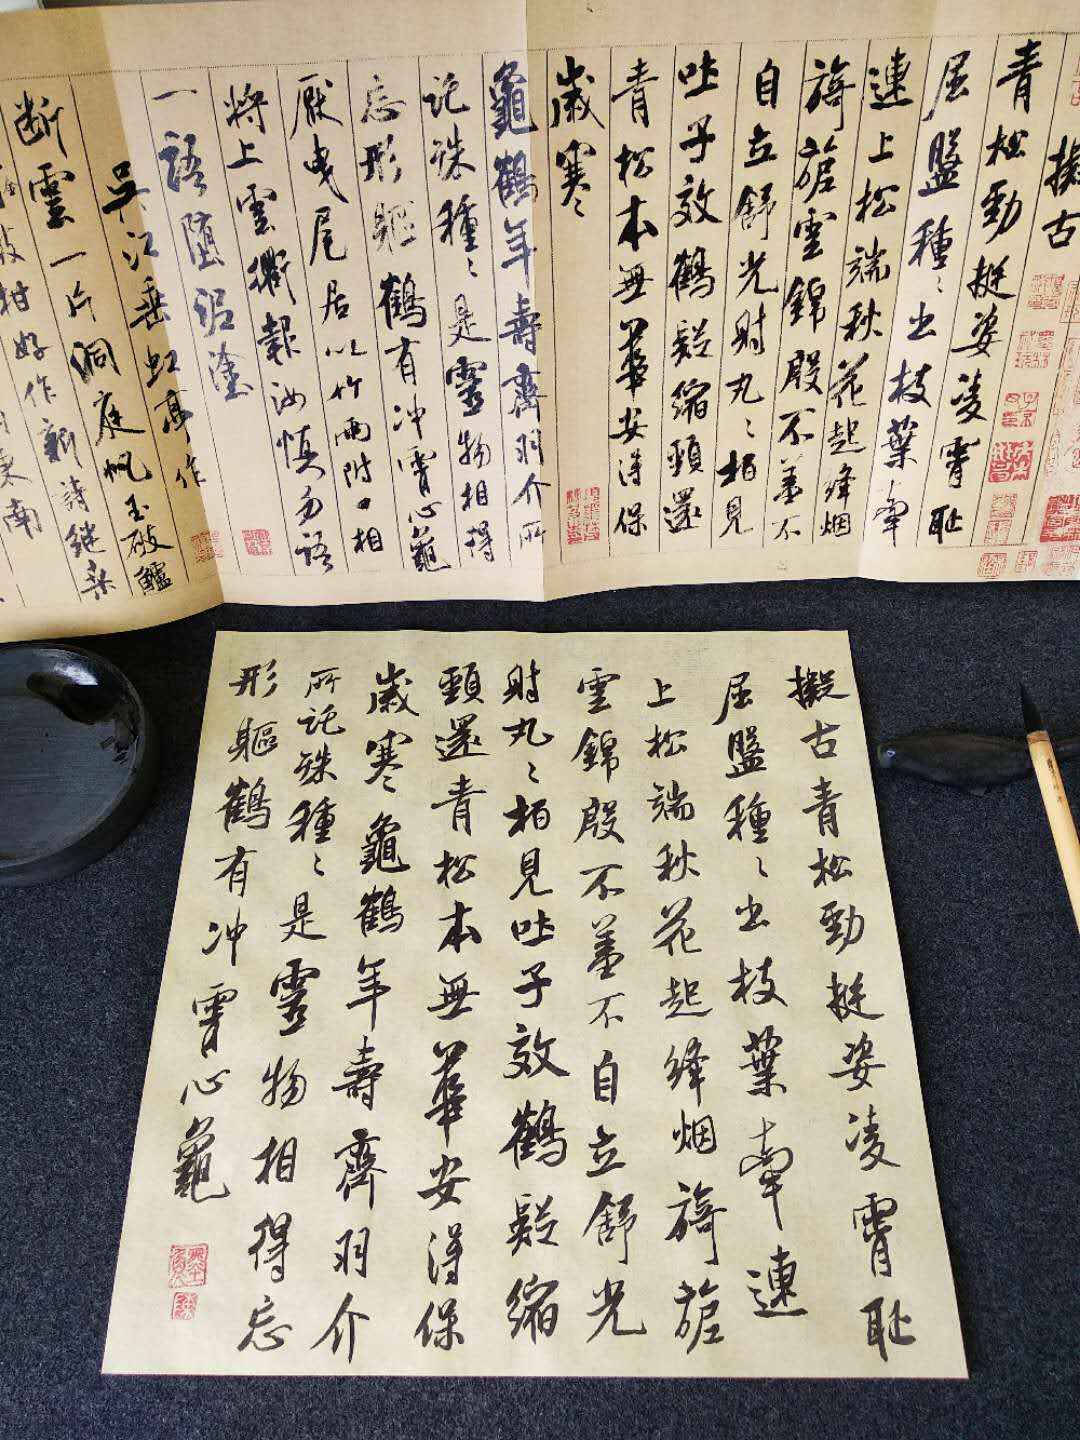 擬古
青松勁挺姿凌霄恥
屈盤種〻出枝葉牽
連上松端秋花起絳烟
旖旎雲錦殷不羞不
自立舒光射丸〻柏見
吐子效鶴疑縮頸還
青松本無華安得保
歲寒〻
龜鶴年壽齊羽介所
託殊種〻是靈物相得
忘形軀鶴有冲霄心龜
厭曳尾居以竹兩附口相
將上雲衢報汝慎勿語
一語墮泥塗
吳江垂虹亭作
断雲一片洞庭帆玉破鱸
好作新詩繼桑
擬古青松勁挺姿凌霄恥
屈盤種〻出枝葉牽連
上松端秋花起絳烟旖旎
雲錦殷不羞不自立舒光
射丸〻柏見吐子效鶴疑縮
頸還青松本無華安得保
歲寒〻龜鶴年壽齊羽介
所託殊種〻是靈物相得忘
形軀鶴有冲霄心龜